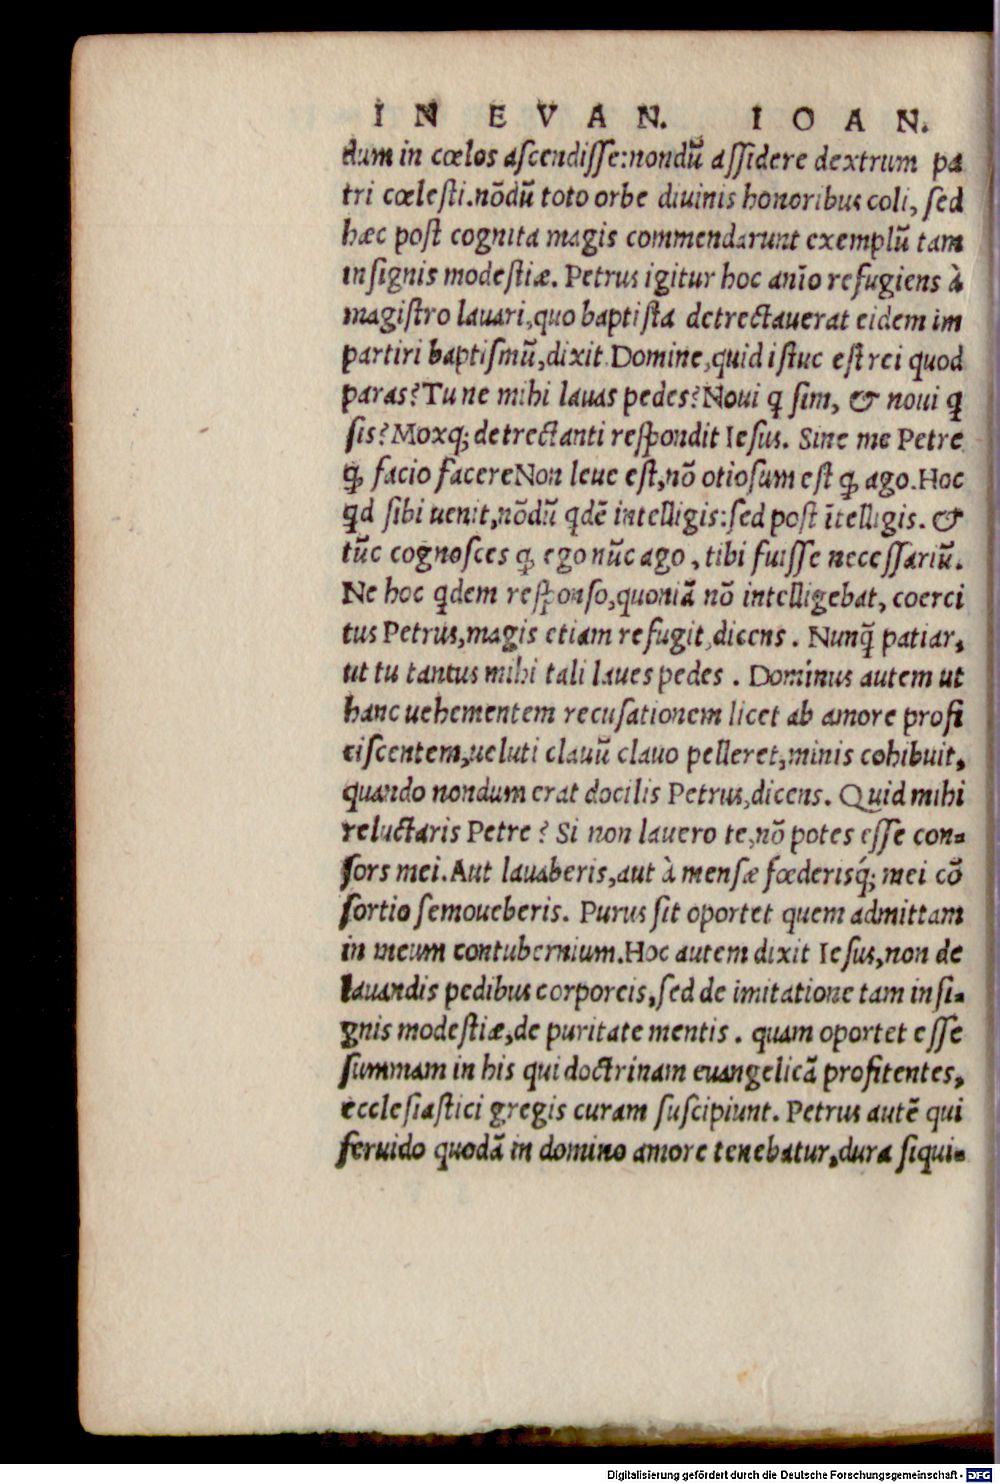 IN EVAN. IOAN.
dum in cœlos ascendisse:nondũ assidere dextrum pa
tri cœlesti.nõdũ toto orbe diuinis honoribus coli, sed
hæc post cognita magis commendarunt exemplũ tam
insignis modestiæ. Petrus igitur hoc anĩo refugiens à
magistro lauari,quo baptista detrectauerat eidem im
partiri baptismũ,dixit.Domine,quid istuc est rei quod
paras?Tu ne mihi lauas pedes?Noui q̃ sim, & noui q̃
sis?Moxq; detrectanti respondit Iesus. Sine me Petre
ꝙ facio facereNon leue est,nõ otiosum est ꝙ ago.Hoc
qd sibi uenit,nõdũ qdẽ intelligis:sed post ĩtelligis. &
tũc cognosces ꝙ ego nũc ago, tibi fuisse necessariũ.
Ne hoc qdem responso,quoniã nõ intelligebat, coerci
tus Petrus,magis etiam refugit,dicens. Nunq̃ patiar,
ut tu tantus mihi tali laues pedes. Dominus autem ut
hanc uehementem recusationem licet ab amore profi
ciscentem,ueluti clauũ clauo pelleret,minis cohibuit,
quando nondum erat docilis Petrus,dicens. Quid mihi
reluctaris Petre? Si non lauero te,nõ potes esse con-
sors mei.Aut lauaberis,aut à mensæ fœderisq́; mei cõ
sortio semoueberis. Purus sit oportet quem admittam
in meum contubernium.Hoc autem dixit Iesus,non de
lauandis pedibus corporeis,sed de imitatione tam insi-
gnis modestiæ,de puritate mentis. quam oportet esse
summam in his qui doctrinam euangelicã profitentes,
ecclesiastici gregis curam suscipiunt. Petrus autẽ qui
feruido quodã in domino amore tenebatur,dura siqui-
Digitalisierung gefördert durch die Deutsche Forschungsgemeinschaft - DFG